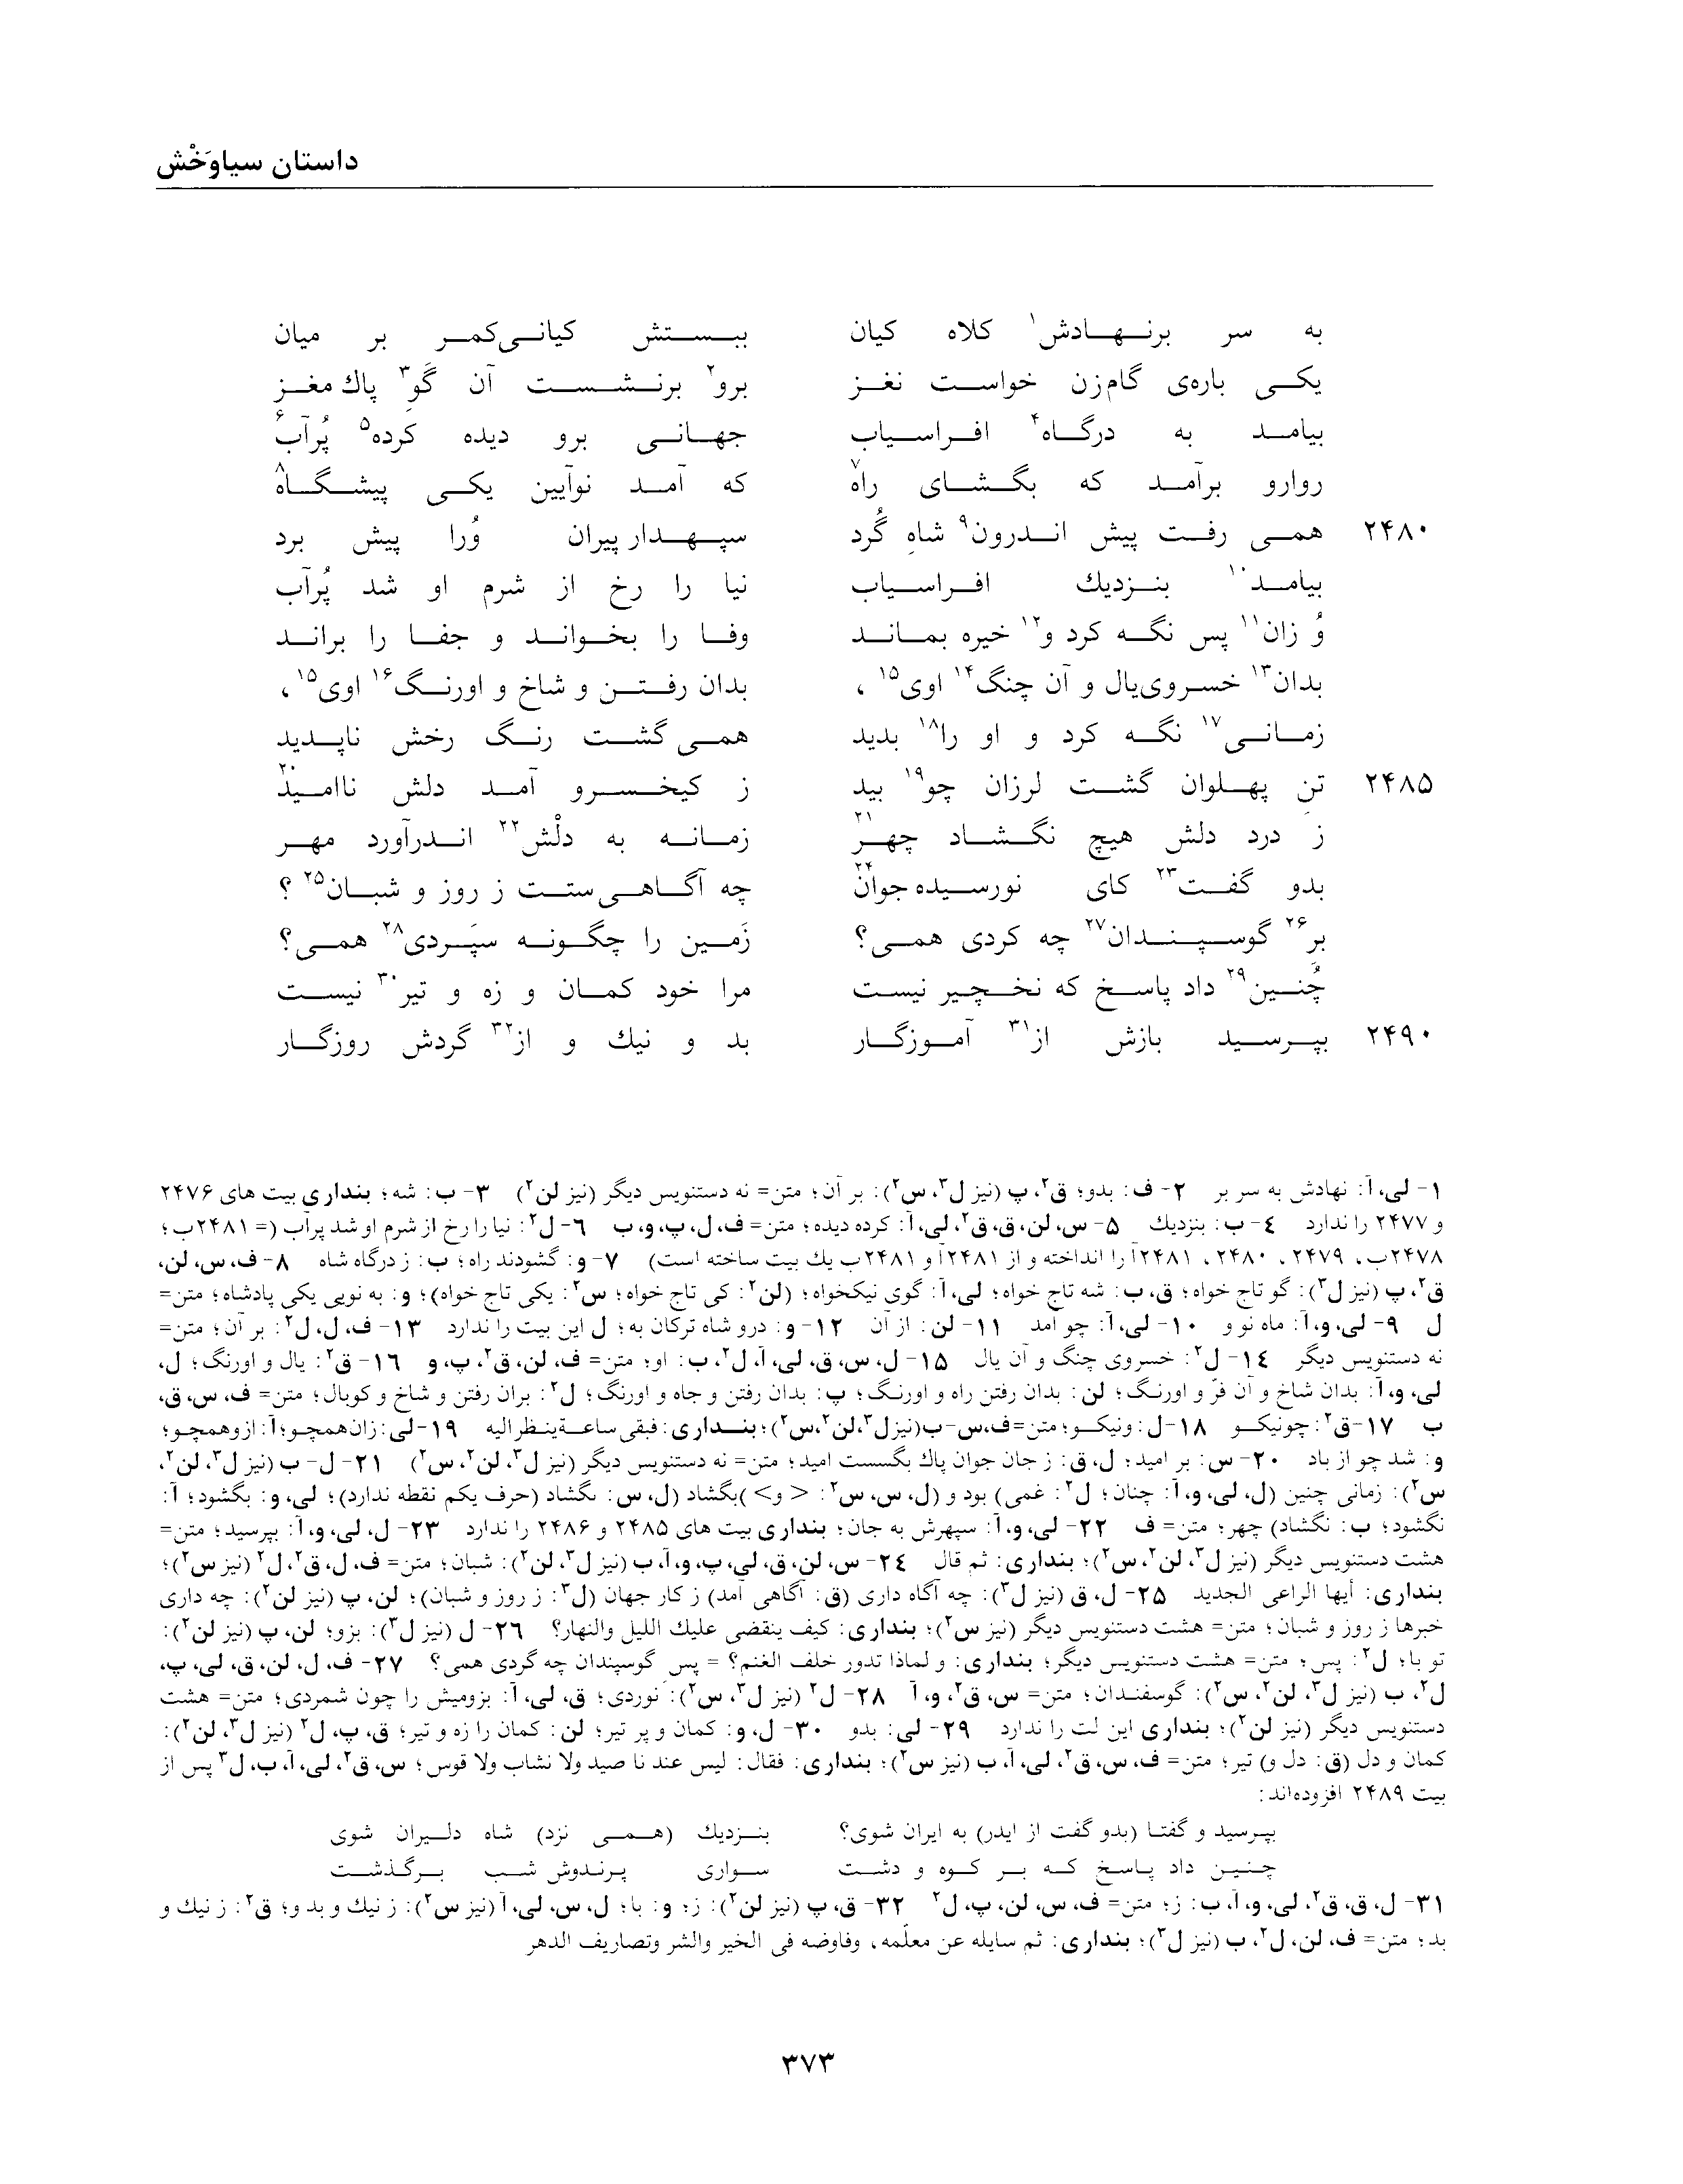 داستان سیاوَخْش
به سر برنهادش¹ کلاه کیان ببستش کیانی‌کمر بر میان
یکی باره‌ی گام‌زن خواست نغز برو² برنشست آن گَوِ³ پاك مغز
بیامد به درگاه⁴ افراسیاب جهانی برو دیده کرده⁵ پُرآب⁶
روارو برآمد که بگشای راه⁷ که آمد نوآیین یکی پیشگاه⁸
۲۴۸۰ همی رفت پیش اندرون⁹ شاهِ گُرد سپهدار پیران وُرا پیش برد
بیامد¹⁰ بنزدیك افراسیاب نیا را رخ از شرم او شد پُرآب
وُ زان¹¹ پس نگه کرد و¹² خیره بماند وفا را بخواند و جفا را براند
بدان¹³ خسروی‌یال و آن چنگ¹⁴ اوی¹⁵ ، بدان رفتن و شاخ و اورنگ¹⁶ اوی¹⁵ ،
زمانی¹⁷ نگه کرد و او را¹⁸ بدید همی گشت رنگ رخش ناپدید
۲۴۸۵ تنِ پهلوان گشت لرزان چو¹⁹ بید ز کیخسرو آمد دلش ناامید²⁰
ز درد دلش هیچ نگشاد چهر²¹ زمانه به دلْش²² اندرآورد مهر
بدو گفت²³ کای نورسیده جوان²⁴ چه آگاهی‌ستت ز روز و شبان²⁵ ؟
بر²⁶ گوسپندان²⁷ چه کردی همی؟ زَمین را چگونه سپَردی²⁸ همی؟
چُنین²⁹ داد پاسخ که نخچیر نیست مرا خود کمان و زه و تیر³⁰ نیست
۲۴۹۰ بپرسید بازش از³¹ آموزگار بد و نیك و از³² گردش روزگار
۱- لی، آ: نهادش به سر بر ۲- ف: بدو؛ ق²، پ (نیز ل³، س²): بر آن؛ متن= نه دستنویس دیگر (نیز لن²) ۳- ب: شه؛ بنداری بیت های ۲۴۷۶
و ۲۴۷۷ را ندارد ٤- ب: بنزدیك ۵- س، لن، ق، ق²، لی، آ: کرده دیده؛ متن= ف، ل، پ، و، ب ٦- ل²: نیا را رخ از شرم او شد پرآب (= ۲۴۸۱ب؛
۲۴۷۸ب، ۲۴۷۹، ۲۴۸۰، ۲۴۸۱آ را انداخته و از ۲۴۸۱آ و ۲۴۸۱ب یك بیت ساخته است) ۷- و: گشودند راه؛ ب: ز درگاه شاه ۸- ف، س، لن،
ق²، پ (نیز ل³): گو تاج خواه؛ ق، ب: شه تاج خواه؛ لی، آ: گوی نیکخواه؛ (لن²: کی تاج خواه؛ س²: یکی تاج خواه)؛ و: به نویی یکی پادشاه؛ متن=
ل ۹- لی، و، آ: ماه نو و ۱۰- لی، آ: چو آمد ۱۱- لن: از آن ۱۲- و: درو شاه ترکان به؛ ل این بیت را ندارد ۱۳- ف، ل، ل²: بر آن؛ متن=
نه دستنویس دیگر ١٤- ل²: خسروی چنگ و آن یال ۱۵- ل، س، ق، لی، آ، ل²، ب: او؛ متن= ف، لن، ق²، پ، و ۱٦- ق²: یال و اورنگ؛ ل،
لی، و، آ: بدان شاخ و آن فرّ و اورنگ؛ لن: بدان رفتن راه و اورنگ؛ پ: بدان رفتن و جاه و اورنگ؛ ل²: بران رفتن و شاخ و کوبال؛ متن= ف، س، ق،
ب ۱۷-ق²: چونیکو ۱۸-ل: ونیکو؛ متن=ف،س-ب(نیزل³،لن²،س²)؛ بنداری: فبقی ساعة ینظر الیه ۱۹-لی: زان‌همچو؛ آ: ازوهمچو؛
و: شد چو از باد ۲۰- س: بر امید؛ ل، ق: ز جان جوان پاك بگسست امید؛ متن= نه دستنویس دیگر (نیز ل³، لن²، س²) ۲۱- ل- ب (نیز ل³، لن²،
س²): زمانی چنین (ل، لی، و، آ: چنان؛ ل²: غمی) بود و (ل، س، س²: <و>) بگشاد (ل، س: نگشاد (حرف یکم نقطه ندارد)؛ لی، و: بگشود؛ آ:
نگشود؛ ب: نگشاد) چهر؛ متن= ف ۲۲- لی، و، آ: سپهرش به جان؛ بنداری بیت های ۲۴۸۵ و ۲۴۸۶ را ندارد ۲۳- ل، لی، و، آ: بپرسید؛ متن=
هشت دستنویس دیگر (نیز ل³، لن²، س²)؛ بنداری: ثم قال ۲٤- س، لن، ق، لی، پ، و، آ، ب (نیز ل³، لن²): شبان؛ متن= ف، ل، ق²، ل² (نیز س²)؛
بنداری: أیها الراعی الجدید ۲۵- ل، ق (نیز ل³): چه آگاه داری (ق: آگاهی آمد) ز کار جهان (ل³: ز روز و شبان)؛ لن، پ (نیز لن²): چه داری
خبرها ز روز و شبان؛ متن= هشت دستنویس دیگر (نیز س²)؛ بنداری: کیف ینقضی علیك اللیل والنهار؟ ۲٦- ل (نیز ل³): بزو؛ لن، پ (نیز لن²):
تو با؛ ل²: پس؛ متن= هشت دستنویس دیگر؛ بنداری: و لماذا تدور خلف الغنم؟ = پس گوسپندان چه گردی همی؟ ۲۷- ف، ل، لن، ق، لی، پ،
ل²، ب (نیز ل³، لن²، س²): گوسفندان؛ متن= س، ق²، و، آ ۲۸- ل² (نیز ل³، س²): نوردی؛ ق، لی، آ: بزومیش را چون شمردی؛ متن= هشت
دستنویس دیگر (نیز لن²)؛ بنداری این لت را ندارد ۲۹- لی: بدو ۳۰- ل، و: کمان و پر تیر؛ لن: کمان را زه و تیر؛ ق، پ، ل² (نیز ل³، لن²):
کمان و دل (ق: دل و) تیر؛ متن= ف، س، ق²، لی، آ، ب (نیز س²)؛ بنداری: فقال: لیس عند نا صید ولا نشاب ولا قوس؛ س، ق²، لی، آ، ب، ل³ پس از
بیت ۲۴۸۹ افزوده‌اند:
بپرسید و گفتا (بدو گفت از ایدر) به ایران شوی؟ بنزدیك (همی نزد) شاه دلیران شوی
چنین داد پاسخ که بر کوه و دشت سواری پرندوش شب برگذشت
۳۱- ل، ق، ق²، لی، و، آ، ب: ز؛ متن= ف، س، لن، پ، ل² ۳۲- ق، پ (نیز لن²): ز؛ و: با؛ ل، س، لی، آ (نیز س²): ز نیك و بد و؛ ق²: ز نیك و
بد؛ متن= ف، لن، ل²، ب (نیز ل³)؛ بنداری: ثم سایله عن معلّمه، وفاوضه فی الخیر والشر وتصاریف الدهر
۳۷۳